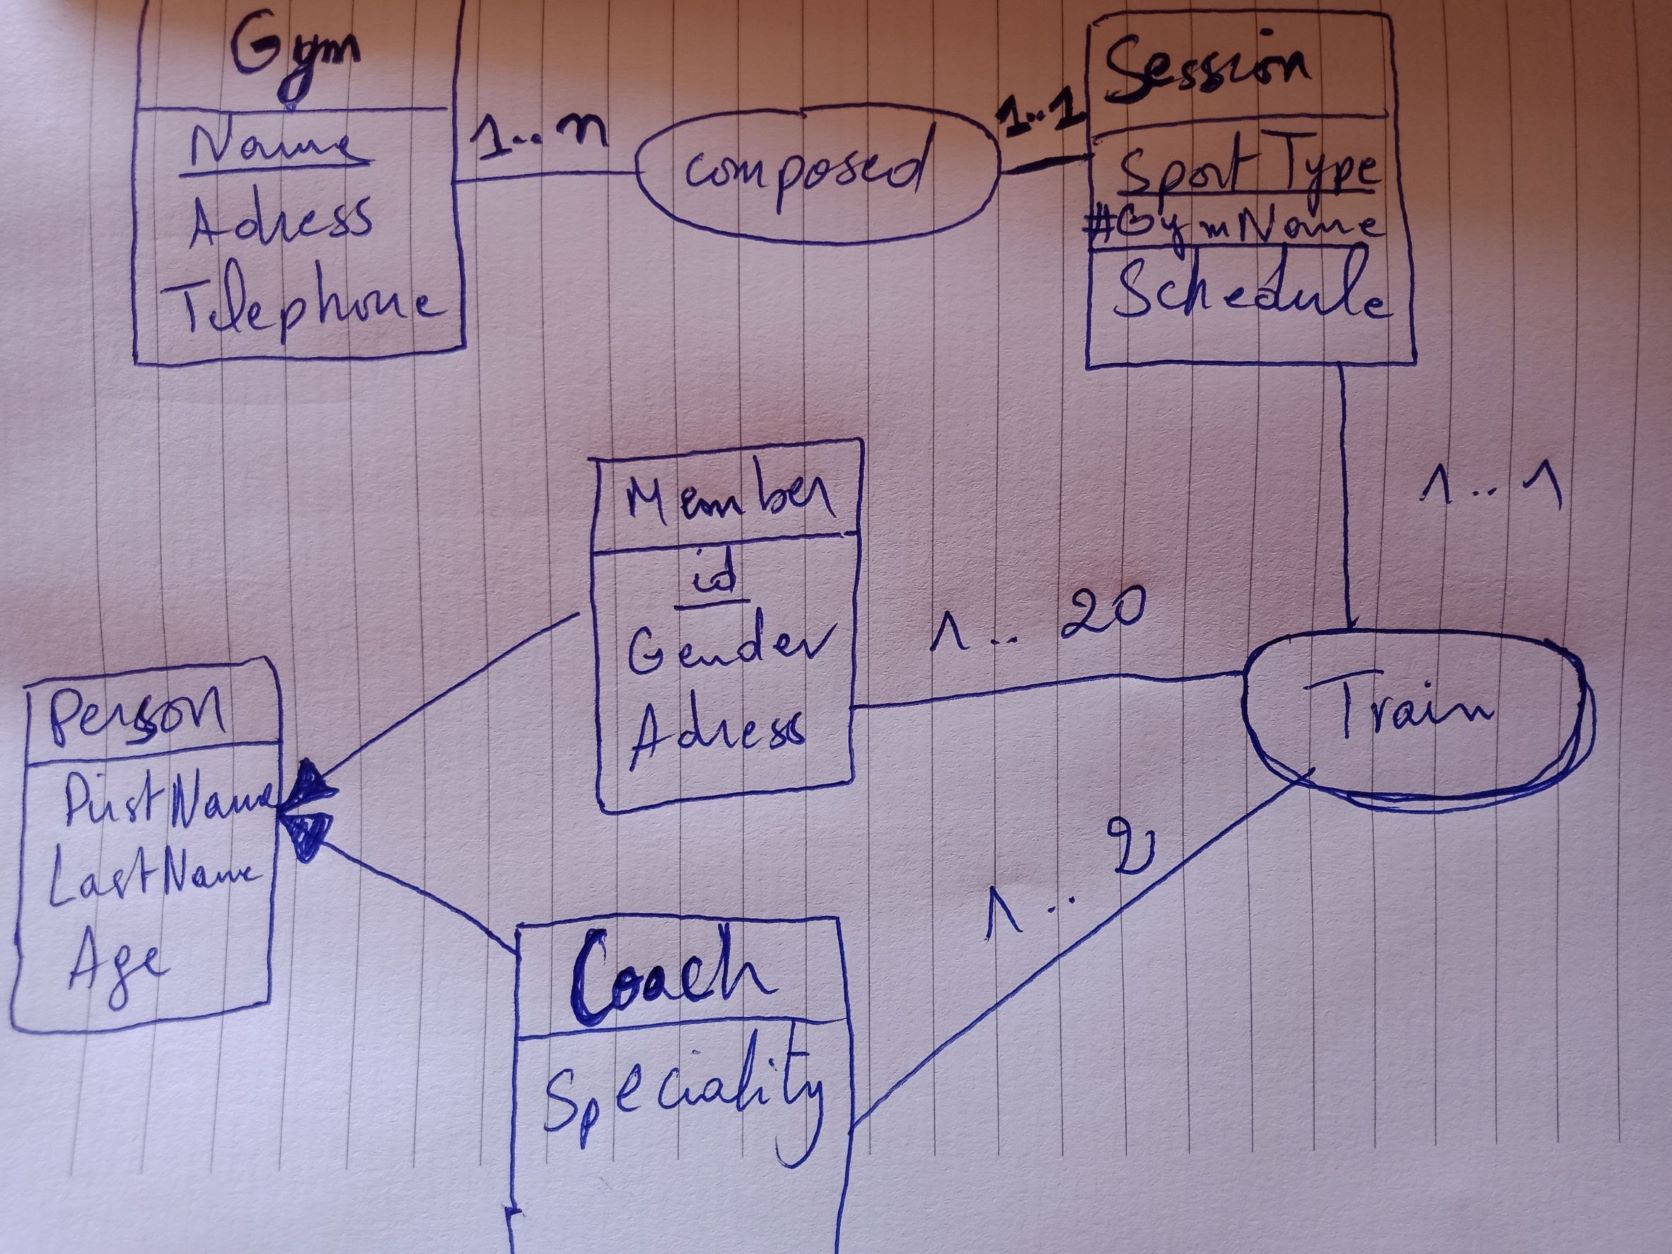 Gym
Name
Adress
Telephone
1..n
composed
1..1
Session
Sport Type
#GymName
Schedule
1..1
Member
id
Gender
Adress
1..20
Train
Person
FirstName
LastName
Age
1..2
Coach
Speciality